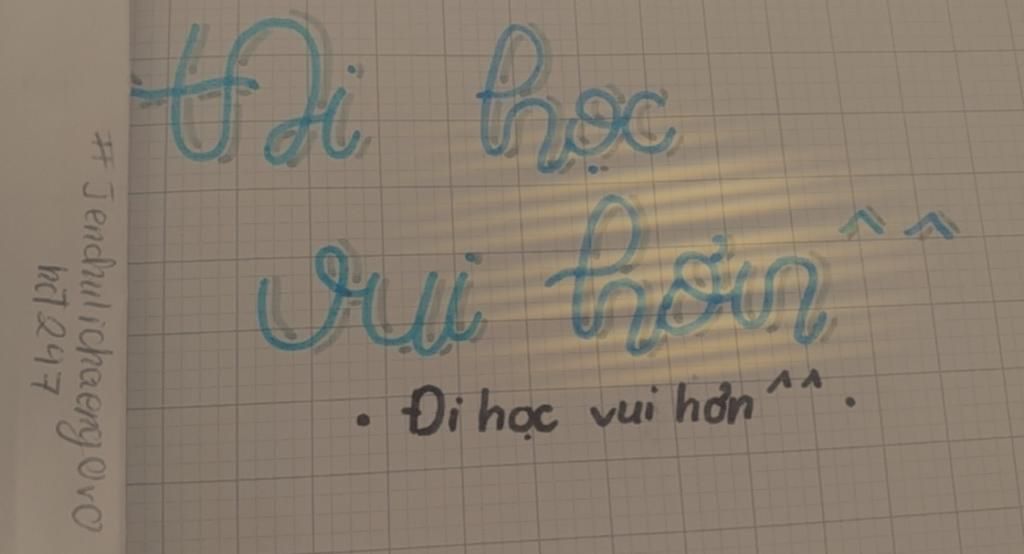 Đi học
vui hơn ^^
• Đi học vui hơn ^^.
# Jendulichaeng OvO
hi7247